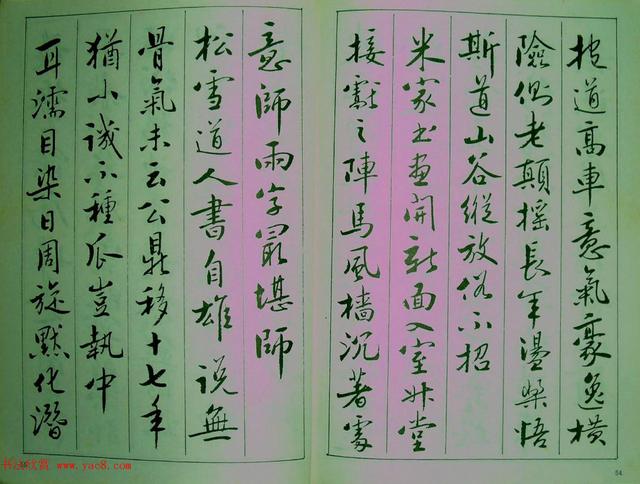 道高車意氣豪逸横
險側老顛搖長年盪槳悟
斯道山谷縱放俗不招
米家書畫開新面入室升堂
接獻之陣馬風檣沉著處
意師兩字最堪師
松雪道人書自雄説無
骨氣未云公鼎移十七年
猶小誡不種瓜豈執中
耳濡目染日周旋默化潛
书法欣赏 www.yac8.com